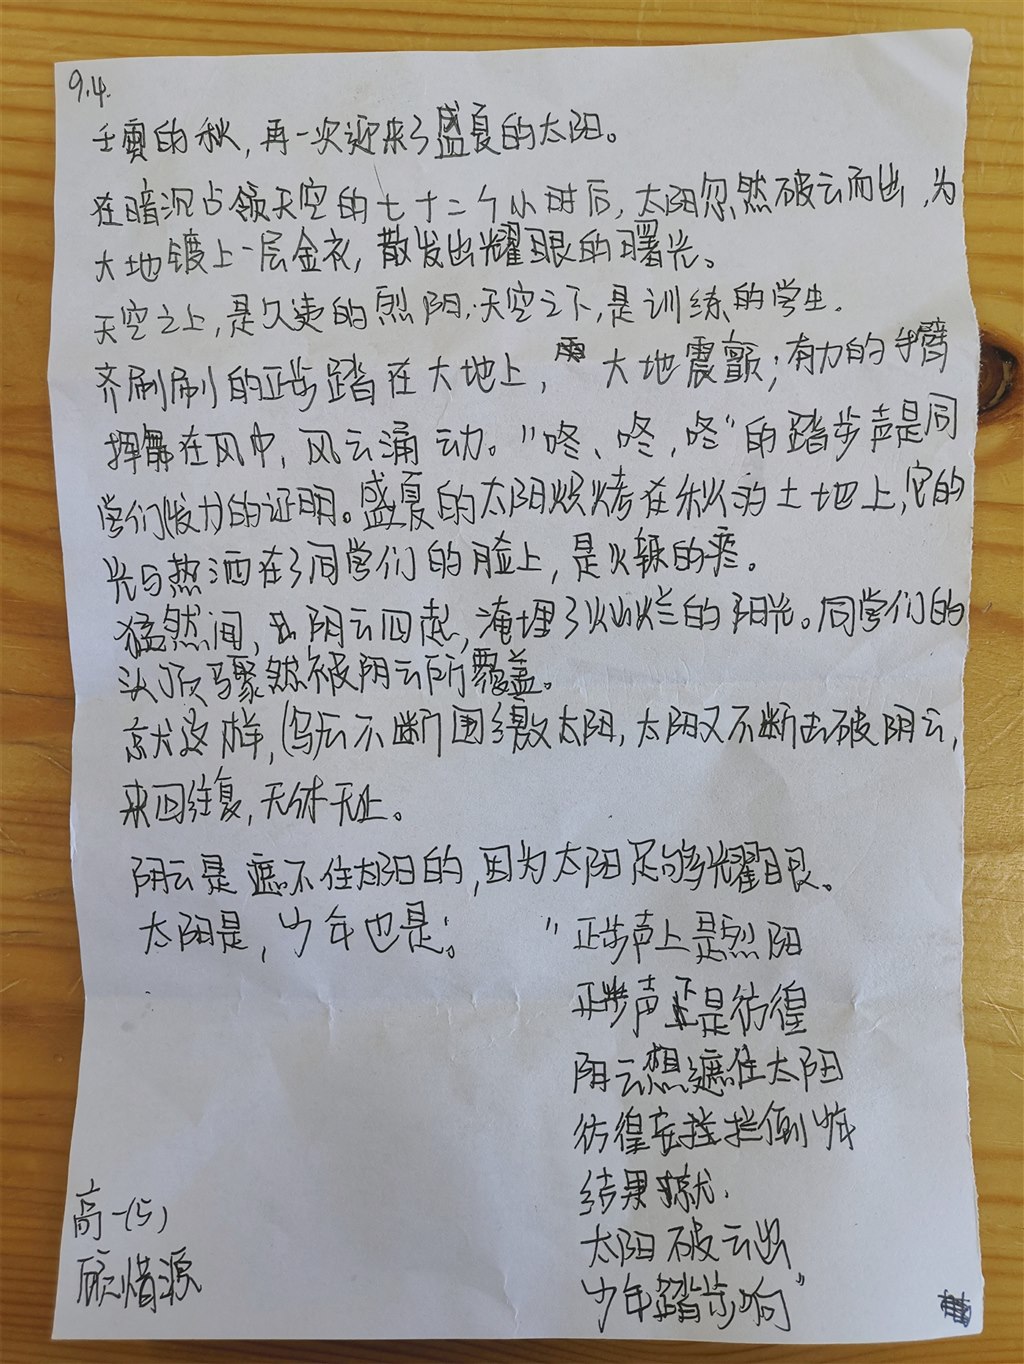 9.4.
壬寅的秋，再一次迎来了盛夏的太阳。
在暗沉占领天空的七十二个小时后，太阳忽然破云而出，为
大地镀上一层金衣，散发出耀眼的曙光。
天空之上，是久违的烈阳；天空之下，是训练的学生。
齐刷刷的正步踏在大地上，大地震颤；有力的手臂
挥舞在风中，风云涌动。"咚、咚、咚"的踏步声是同
学们发力的证明。盛夏的太阳炽烤在秋的土地上，它的
光与热洒在了同学们的脸上，是火辣的疼。
猛然间，阴云四起，淹埋了灿烂的阳光。同学们的
头顶骤然被阴云所覆盖。
就这样，乌云不断围缴太阳，太阳又不断击破阴云，
来回往复，无休无止。
阴云是遮不住太阳的，因为太阳足够耀眼。
太阳是，少年也是：
"正步声上是烈阳
正步声下是彷徨
阴云想遮住太阳
彷徨妄拦倒少年
结果就.
太阳破云出
少年踏步响"
高一(5)
顾惜源